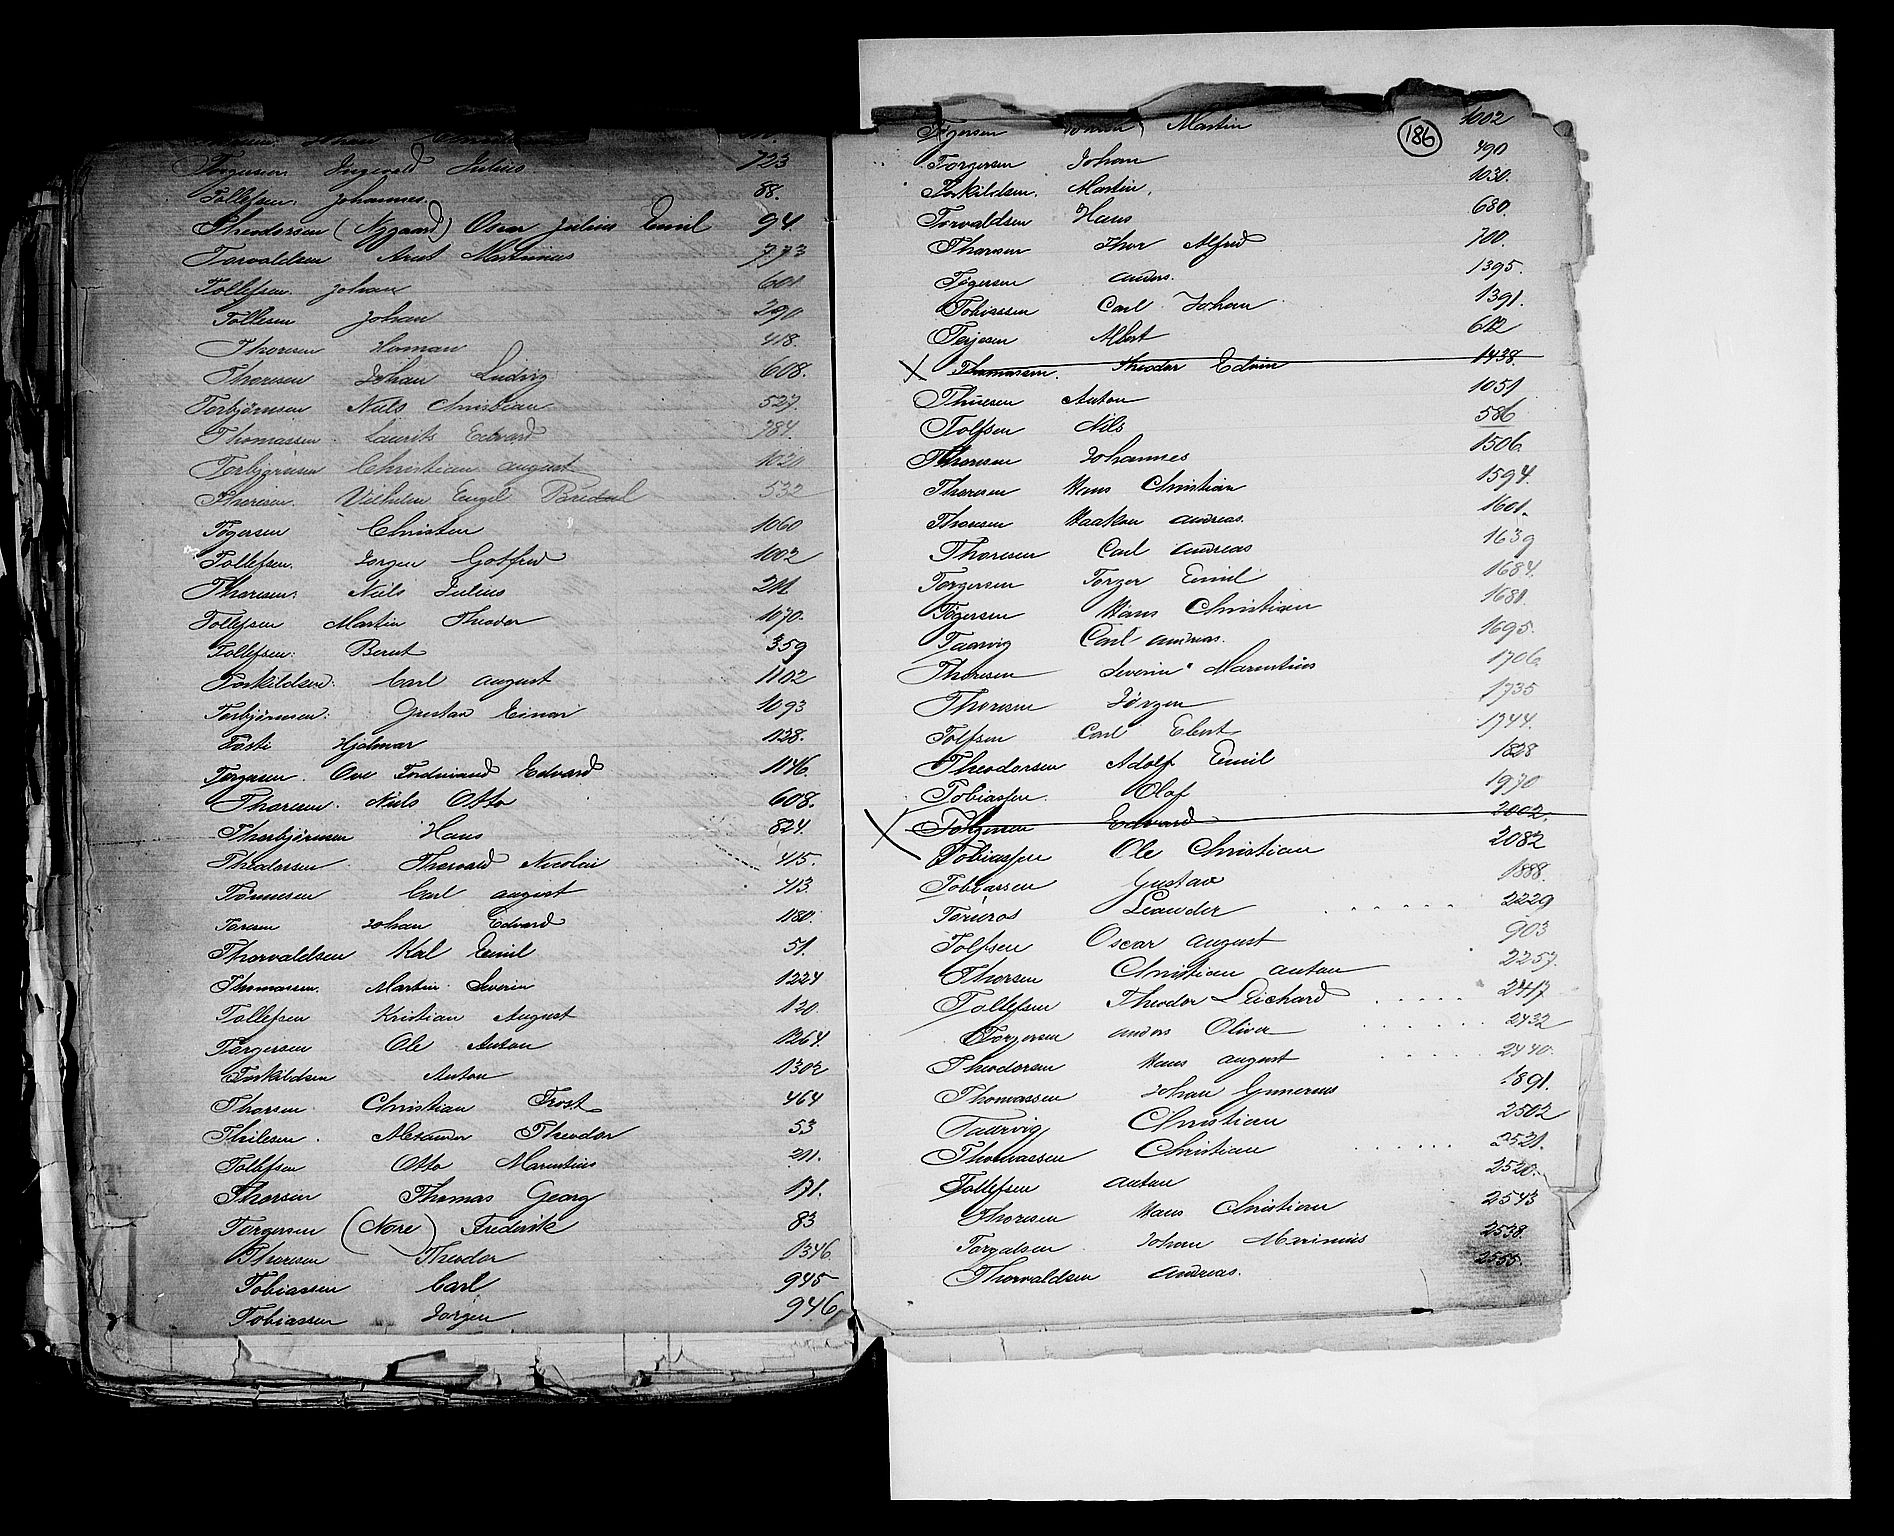 Johan
Torgersen. Ingvald Julius. 723
Tollefsen. Johannes. 88.
Theodorsen (Nygaard) Oscar Julius Emil 94.
Torvaldsen Arnt Martinius 773
Tollefsen. Johan 601
Tollesen Johan 290
Thoresen Herman 418.
Thoresen Johan Ludvig 608.
Torbjörnsen Niels Christian 527.
Thomassen Laurits Edvard 784.
Torbjørnsen Christian August 1020
Thoresen. Vilhelm Engel Bredal 532
Tøgersen Christen 1060
Tollefsen. Jørgen Gotfred 1002
Thoresen. Niels Julius 211
Tollefsen Martin Theodor 1070.
Tollefsen. Bernt 359
Torkildsen. Carl August 1102
Torbjørnsen. Gustav Einar 1093
Tøsti Hjalmar 1128.
Torgersen. Ove Ferdinand Edvard 1146.
Thoresen. Niels Otto 608.
Thorbjörnsen Hans 824.
Theodorsen Thorvald Nicolai 415.
Tønnesen Carl August 413.
Toresen Johan Edvard 1180.
Thorvaldsen Karl Emil 51.
Thomassen. Martin Severin 1224
Tollefsen Kristian August 120.
Torgersen Ole Anton 1264.
Torkildsen Anton 1302
Thorsen Christian Frost 464
Thilesen. Alexander Theodor 53
Tollefsen Otto Marentius 201.
Thorsen Thomas Georg 171.
Torgersen (Nore) Frederik 83
Thoresen Theodor 1346
Tobiassen Carl 945
Tobiassen Jørgen 946
186
Tøgersen Martin 1002
Torgersen Johan 490
Torkildsen. Martin. 1030.
Torvaldsen Hans 680.
Thorsen Thor Alfred 700.
Tøgersen Anders. 1395.
Tobiassen Carl Johan 1391.
Terjesen Albert 612
X Thomassen. Theodor Edvin 1438.
Thuesen Anton 1051
Tolfsen Nils 586
Thoresen Johannes 1506.
Thoresen Hans Christian 1594.
Thoresen Haakon Andreas. 1601.
Thoresen Carl Andreas 1639
Torgersen Torger Emil 1684.
Tøgersen Hans Christian 1681.
Taarvig Carl Andreas. 1695.
Thoresen Severin Marentius 1706
Thoresen Jørgen 1735
Tolfsen Carl Ebert 1744.
Theodorsen Adolf Emil 1828
Tobiassen. Olaf 1970
X Edvard 2002.
Tobiassen Ole Christian 2082
Tobiassen Gustav 1888.
Leander 2229
Tolfsen Oscar August 903
Thorsen Christian Anton 2257.
Tollefsen Theodor Richard 2417
Torgersen Anders Oliver 2432
Theodorsen Hans August 2440.
Thomassen Johan Gunerius 1891.
Taarvig Christian 2502
Thomassen Christian 2521.
Tollefsen Anton 2520.
Thoresen Hans Christian 2543
Torgalsen Johan Marinius 2538.
Thorvaldsen Andreas. 2555.